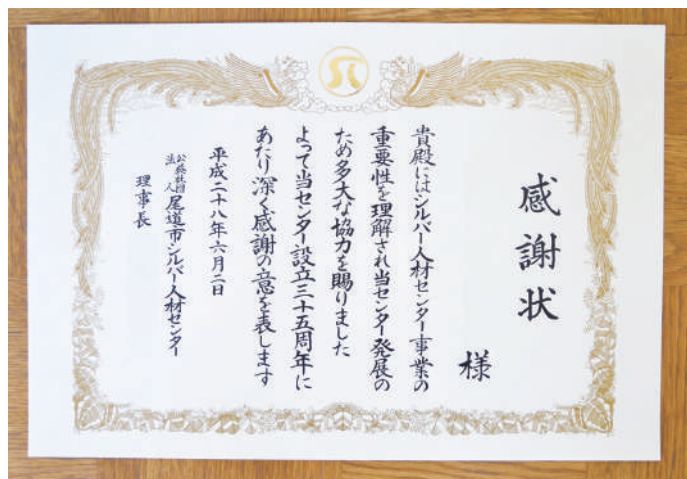 感謝状
様
貴殿にはシルバー人材センター事業の
重要性を理解され当センター発展の
ため多大な協力を賜りました
よって当センター設立三十五周年に
あたり深く感謝の意を表します
平成二十八年六月二日
公益社団法人尾道市シルバー人材センター
理事長